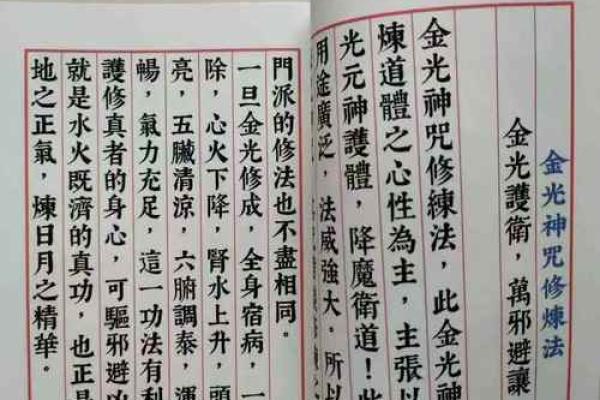 金光神咒修煉法
金光護衛，萬邪避讓
金光神咒修練法，此金光神
煉道體之心性為主，主張以
光元神護體，降魔衛道！此
用途廣泛，法威強大。所以
門派的修法也不盡相同。
一旦金光修成，全身宿病，一
除，心火下降，腎水上升，頭
亮，五臟清涼，六腑調泰，運
暢，氣力充足，這一功法有利
護修真者的身心，可驅邪避凶
就是水火既濟的真功，也正是
地之正氣，煉日月之精華。